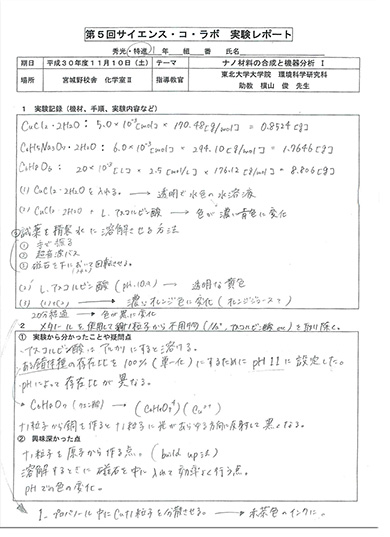 第5回サイエンス・コ・ラボ 実験レポート
秀光・特進 1 年 組 番 氏名
期日 平成30年度11月10日(土) テーマ ナノ材料の合成と機器分析 Ⅰ
場所 宮城野校舎 化学室Ⅱ 指導教官 東北大学大学院 環境科学研究科
助教 横山 俊 先生
1 実験記録(機材、手順、実験内容など)
CuCl₂・2H₂O : 5.0×10⁻³[mol] × 170.48[g/mol] = 0.8524[g]
6.0×10⁻³[mol] × 294.10[g/mol] = 1.7646[g]
C₆H₈O₆ : 20×10⁻³[L] × 2.5[mol/L] × 176.12[g/mol] = 8.806[g]
(1) CuCl₂・2H₂Oを入れる。→ 透明で水色の水溶液
(2) CuCl₂・2H₂O + L-アスコルビン酸 → 色が濃い青色に変化
試薬を精製水に溶解させる方法
① 手で振る
② 超音波バス
③ 磁石を下において回転させる。
(1)' L-アスコルビン酸 (pH.10.0) → 透明な黄色
→ 濃いオレンジ色に変化(オレンジジュース?)
20分経過 → 色が黒に変化
2 メタノールを使用して銅ナノ粒子から不用物(アスコルビン酸 etc)を取り除く。
① 実験から分かったことや疑問点
・アスコルビン酸はアルカリにすると溶ける。
ある錯体種の存在比を100%(単一化)にするためにpH11に設定した。
pHによって存在比が異なる。
(クエン酸) →
ナノ粒子から銅を作るとナノ粒子に光があらゆる方向に反射して黒くなる。
② 興味深かった点
ナノ粒子を原子から作る点。(build up法)
溶解するときに磁石を中に入れて効率よく行う点。
pHでの色の変化。
1-プロパノール中にCuナノ粒子を分散させる。→ 赤茶色のインクに。